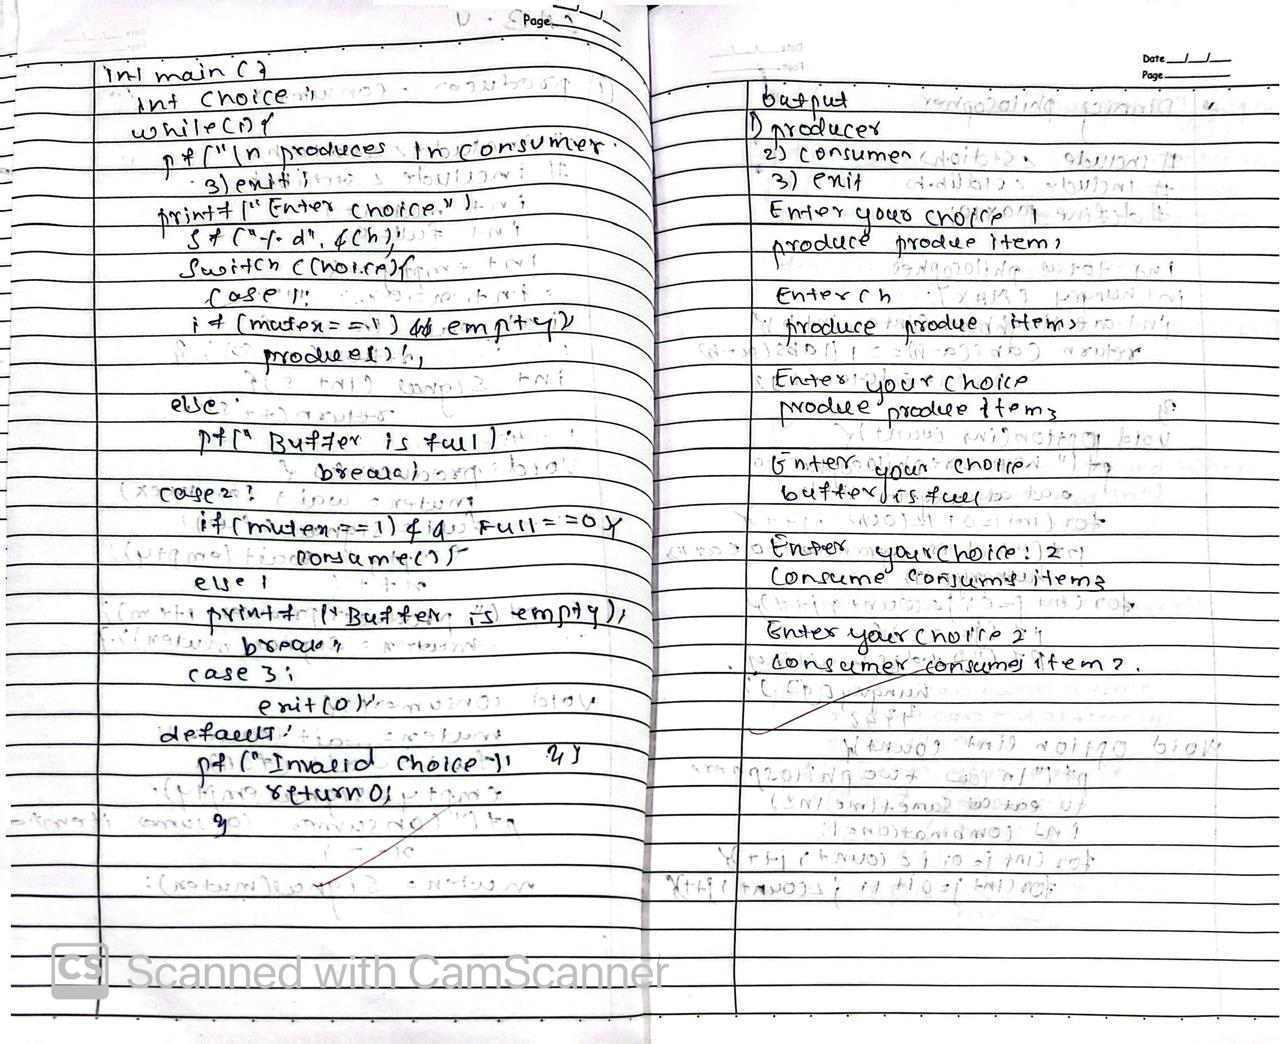 Page
int main () {
int choice;
while(1){
pf("\n produces \n consumer.
3) exit;
printf("Enter choice.");
sf("%d", &ch);
switch (choice){
case 1:
if (mutex==1) && empty)
produces);
else:
pf(" Buffer is full);
break;
case 2:
if (mutex==1) && Full==0)
consume();
else;
printf ("Buffer is empty);
break;
case 3:
exit(0);
default:
pf("Invalid choice");
return 0;
}
Date
Page
output
1) producer
2) consumer
3) exit
Enter your choice 1
produce produe item,
Enter ch
produce produe item,
Enter your choice
produce produce item3
Enter your choice
buffer is full
Enter your choice: 2
consume consums item3
Enter your choice 2
consumer consumes item 2.
CS Scanned with CamScanner